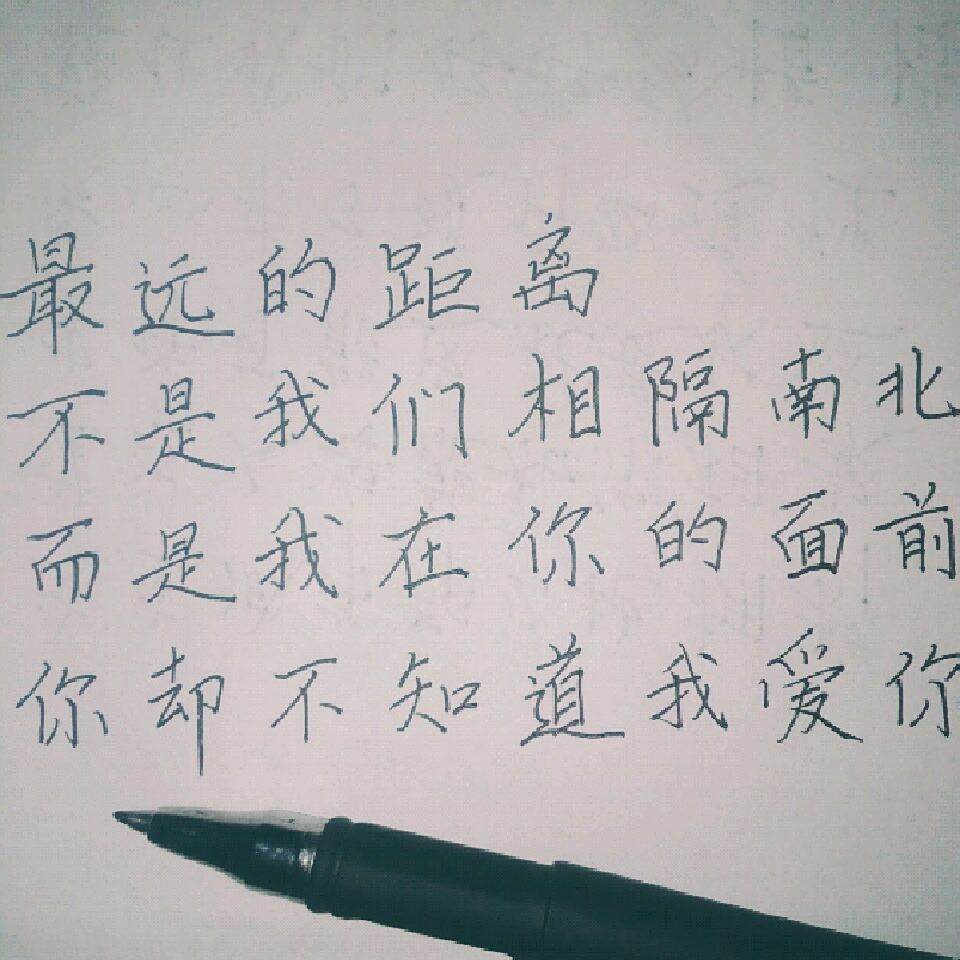 最远的距离
不是我们相隔南北
而是我在你的面前
你却不知道我爱你